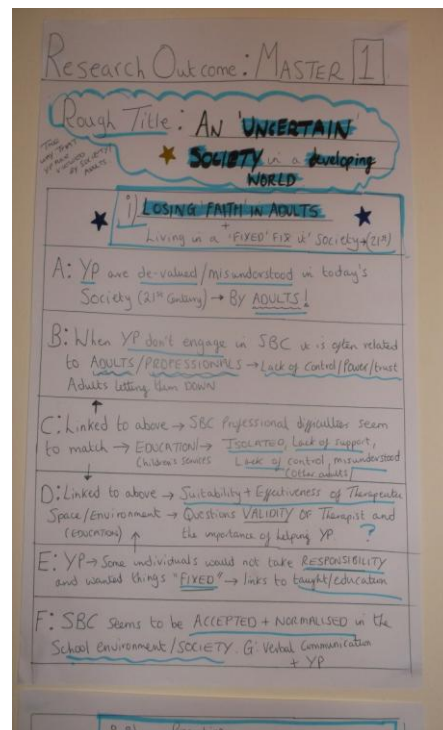 Research Outcome: MASTER 1
Rough Title: AN 'UNCERTAIN'
SOCIETY in a developing
WORLD
THE
way that
YP are
viewed
by society/
ADULTS
i) LOSING 'FAITH' IN ADULTS
Living in a 'FIXED' FIX it' Society → (21st)
A: YP are de-valued/misunderstood in today's
Society (21st Century) → By ADULTS!
B: When YP don't engage in SBC it is often related
to ADULTS/PROFESSIONALS → Lack of control/Power/trust
Adults letting them DOWN
C: Linked to above → SBC Professional difficulties seem
to match → EDUCATION/ → ISOLATED, Lack of support,
Children's Services Lack of control, misunderstood
(other adults)
D: Linked to above → Suitability + Effectiveness of Therapeutic
Space/Environment → Questions VALIDITY OF Therapist and
(EDUCATION) the importance of helping YP. ?
E: YP → Some individuals would not take RESPONSIBILITY
and wanted things "FIXED" → links to taught/education
F: SBC seems to be ACCEPTED + NORMALISED in the
School environment/SOCIETY. G: Verbal Communication
+ YP